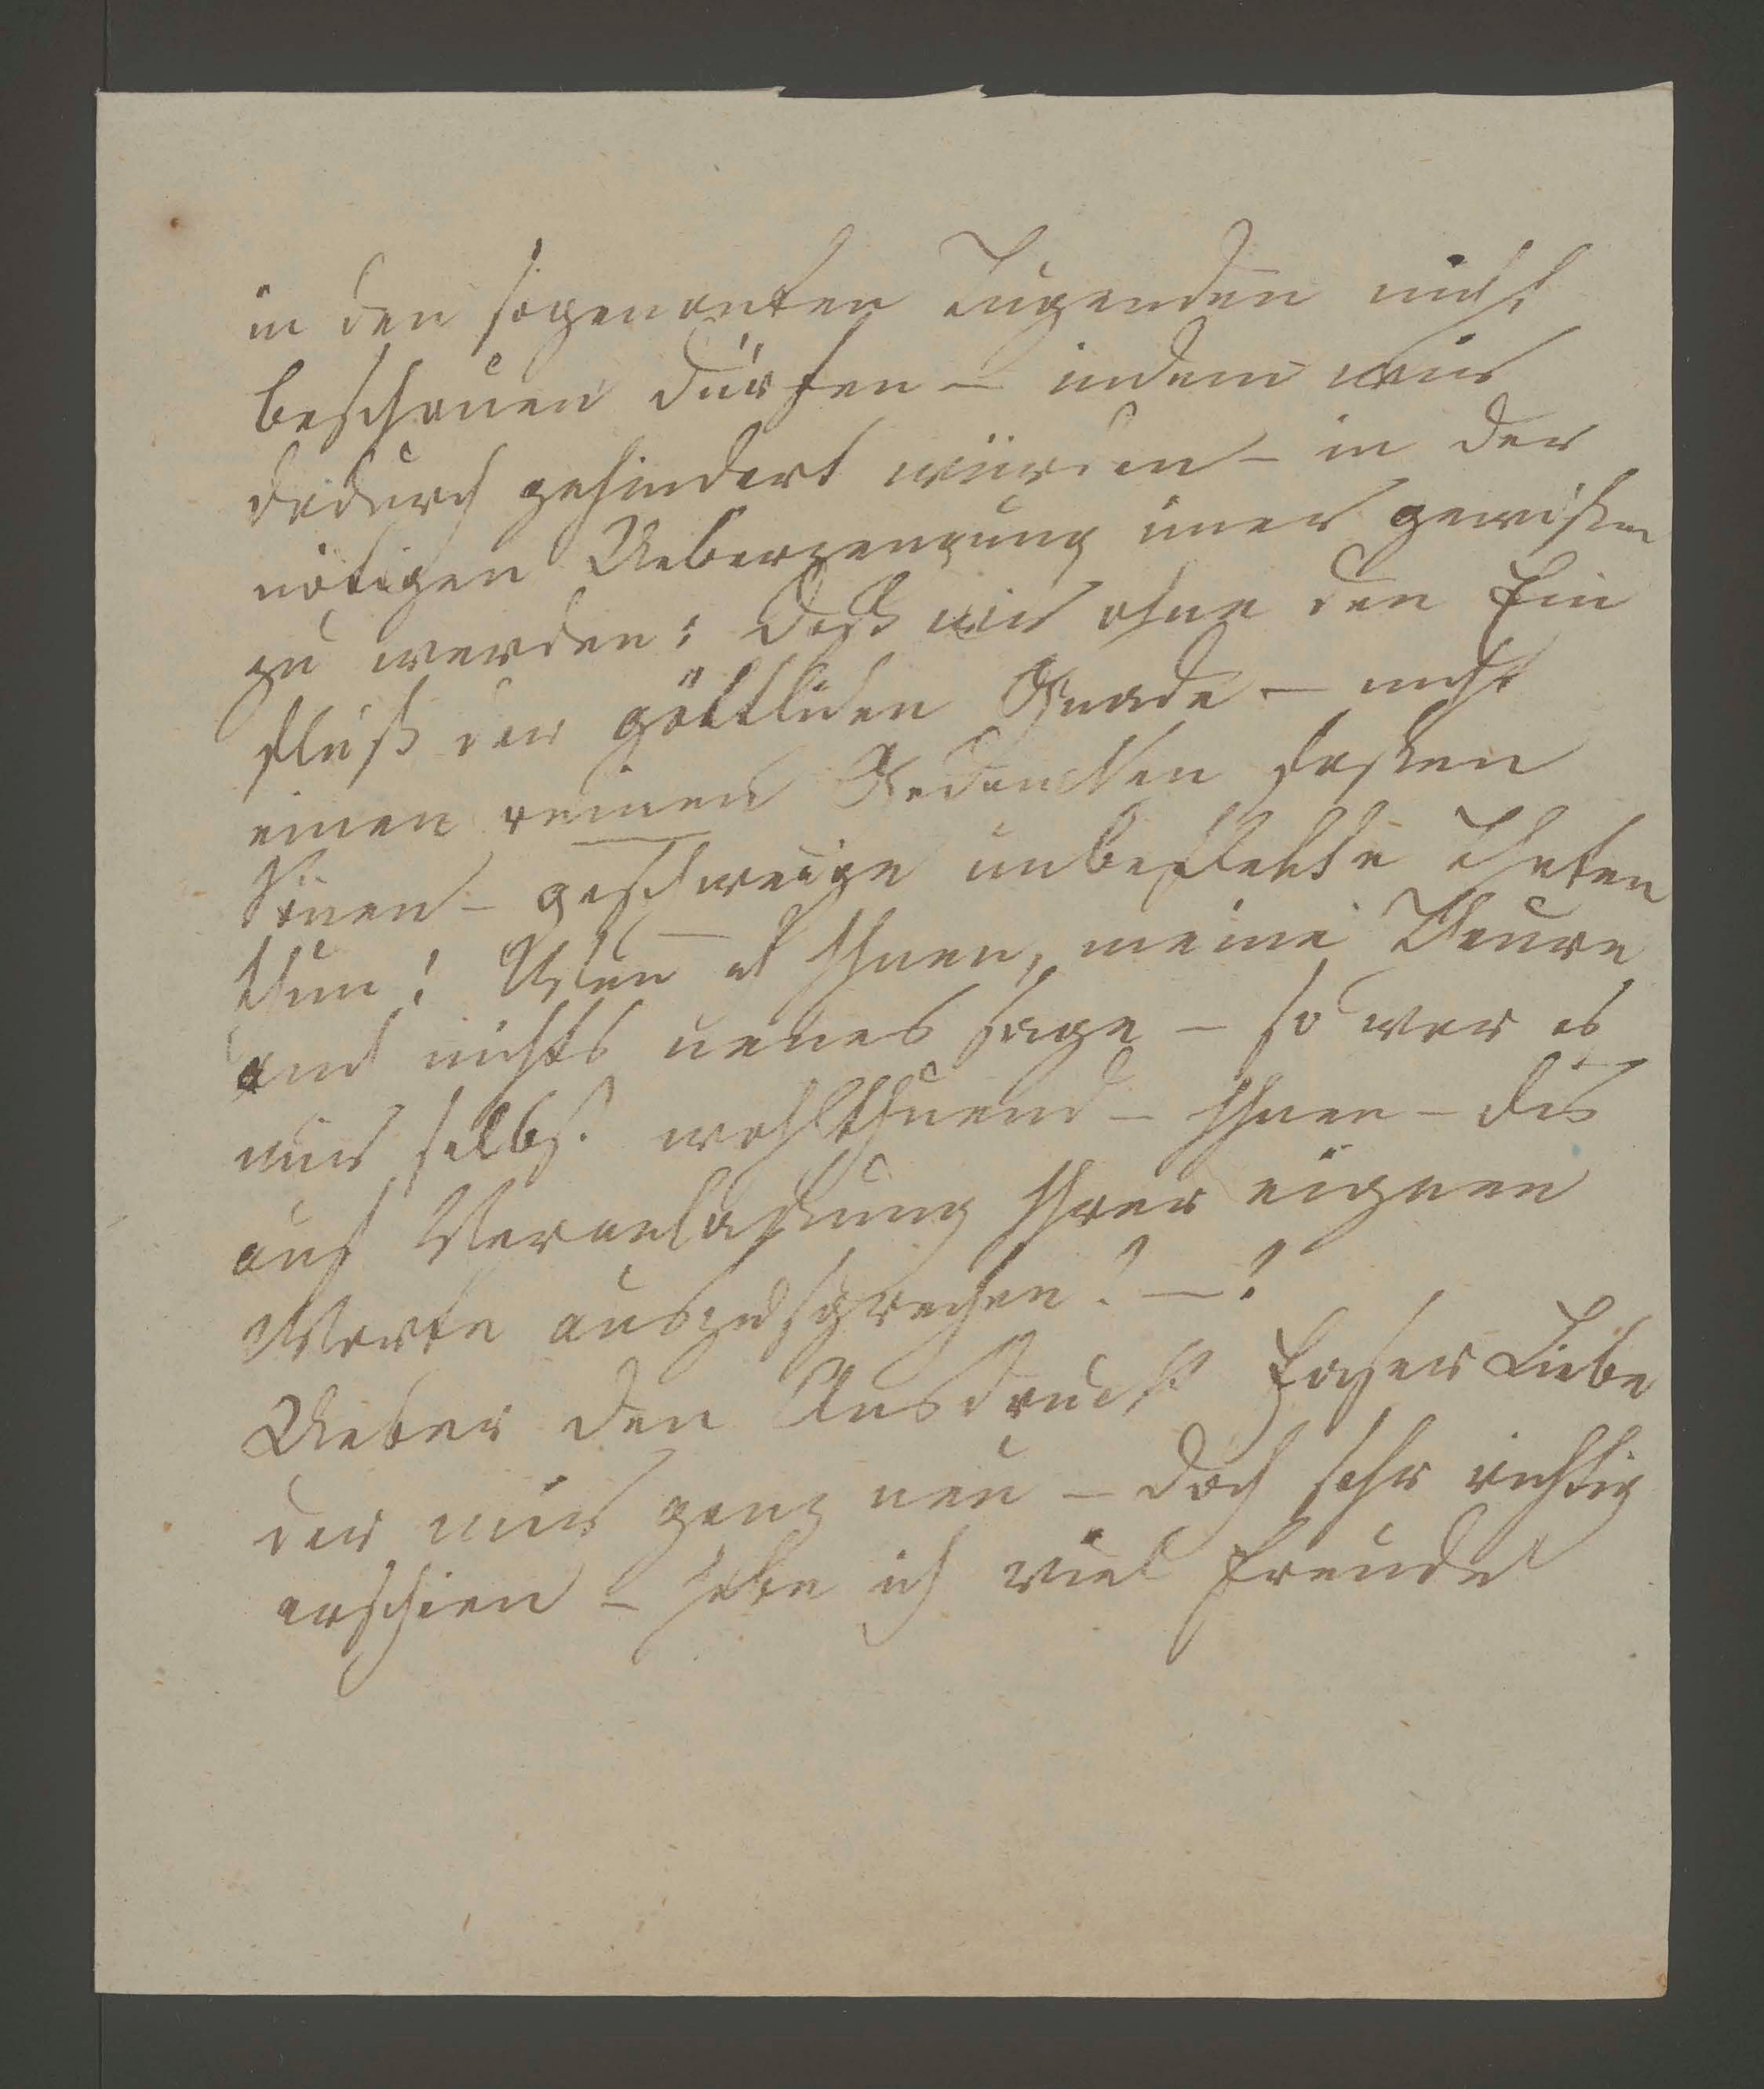 in den sogenanten Tugenden nicht
beschauen dürfen – indem wir
dadurch gehindert würden – in der
nötigen Ueberzeugung imer gewißer
zu werden: daß wir ohne den Ein
fluß der göttlichen Gnade – nicht
einen reinen Gedancken faßen
könen – geschweige unbeflekte Thaten
thun! Wen ich Ihnen, meine Theure
auch nichts neues sage – so war es
mir selbst wohlthuend – Ihnen – dis
auf Veranlaßung Ihrer eignen
Worte auszusprechen! – !
Ueber den Ausdruck Liebe
der mir ganz neu – doch sehr richtig
erschien – habe ich viel Freude